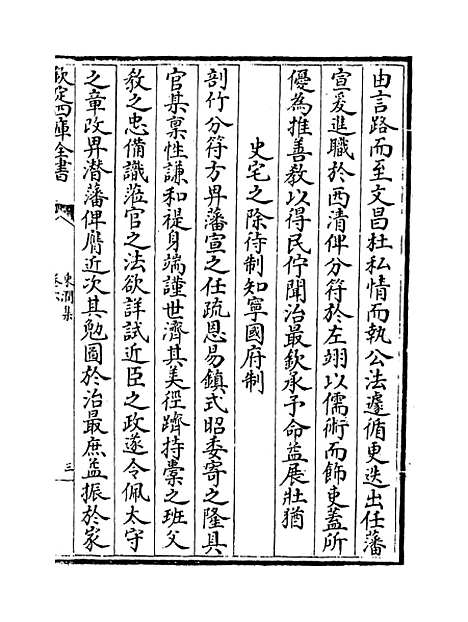 由言路而至文昌杜私情而執公法遽循更迭出任藩
宣爰進職於西清俾分符於左翊以儒術而飾吏蓋所
優為推善教以得民佇聞治最欽承予命益展壯猶
史宅之除待制知寧國府制
剖竹分符方畀藩宣之任疏恩易鎮式昭委寄之隆具
官某禀性謙和禔身端謹世濟其美徑躋持橐之班父
教之忠備識涖官之法欲詳試近臣之政遂令佩太守
之章改畀潛藩俾膺近次其勉圖於治最庶益振於家
欽定四庫全書
東澗集
卷六
三